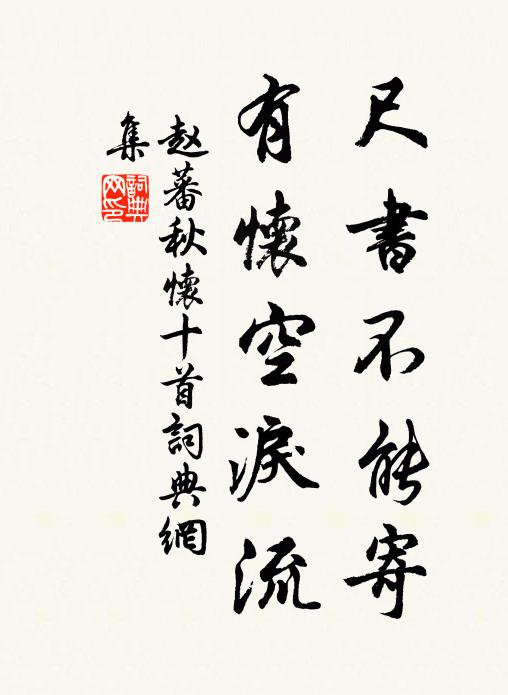 尺書不能寄
有懷空淚流
赵蕃秋懷十首詞典網
集
詞典
网印